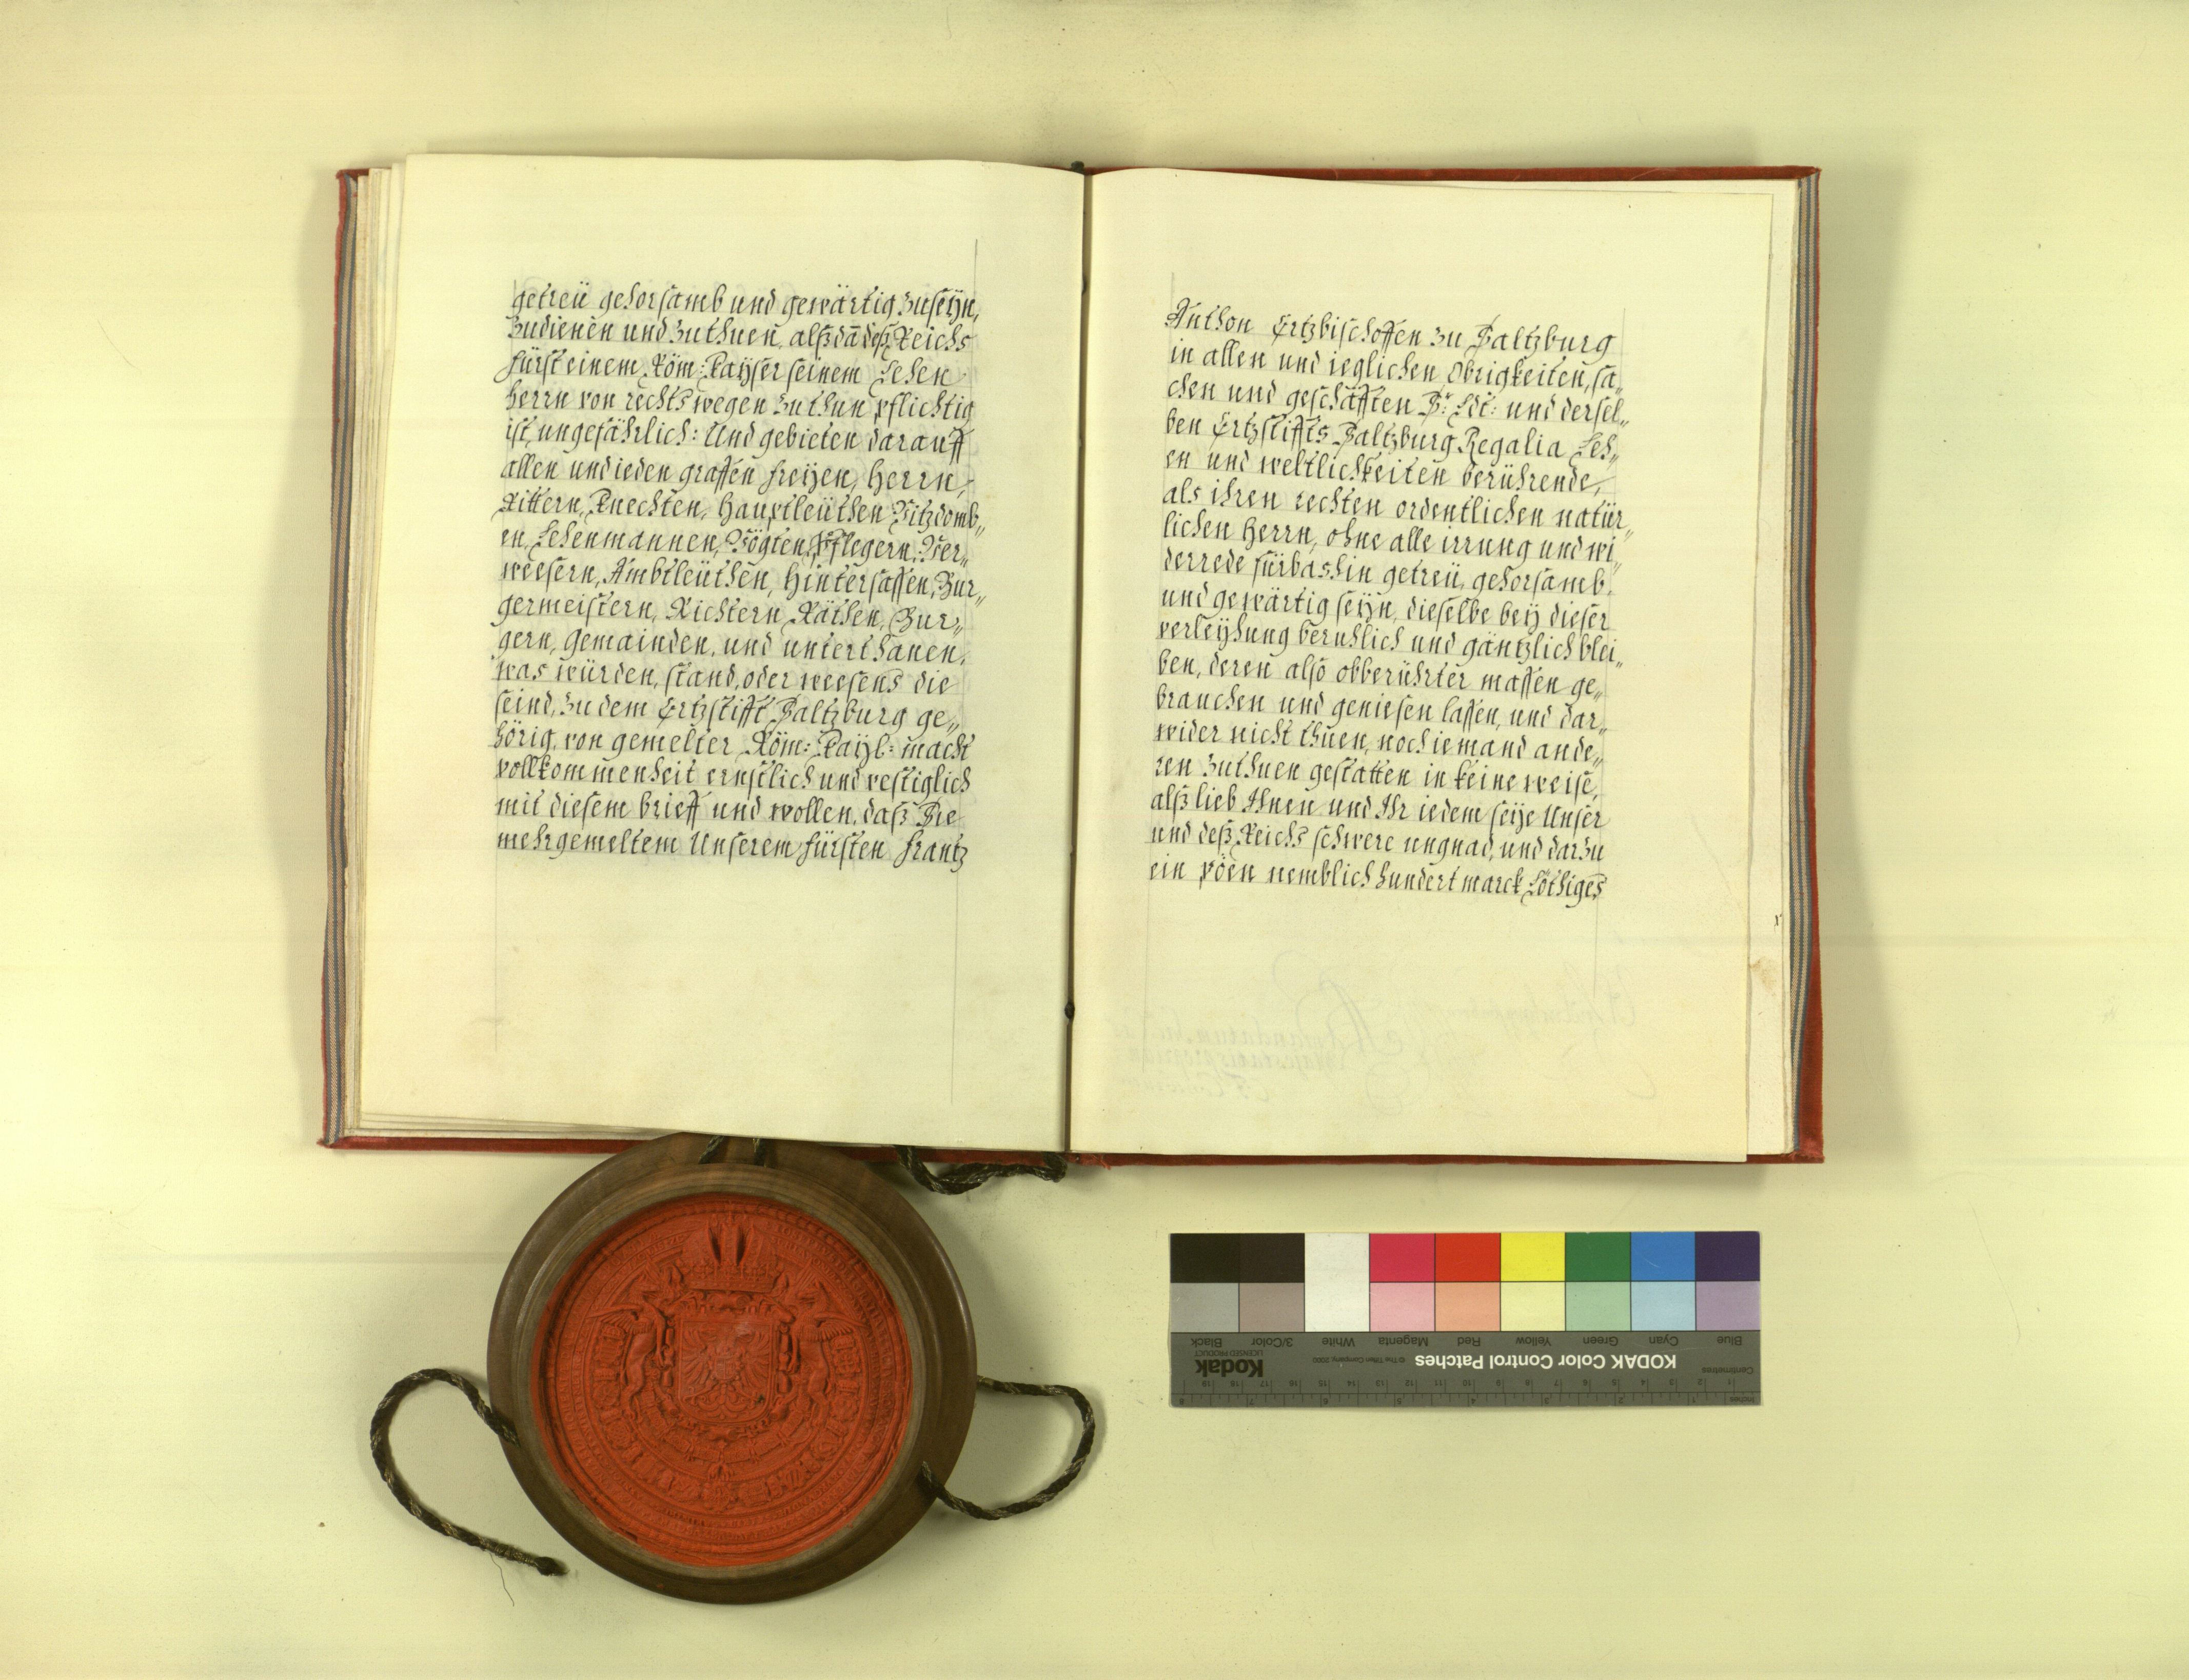 getreü gehorsamb und gewärtig zuseÿn,
zudienen und zuthuen, alß dañ deß Reichs
fürst einem Röm: Kaÿser seinem Lehen
herrn von rechts wegen zuthun pflichtig
ist, ungefährlich: Und gebieten darauff
allen und ieden graffen freÿen, herrn,
Rittern, Knechten, Hauptleüthen Vitzdomb„
en, Lehenmannen, Vögten, Pflegern, Ver„
weesern, Ambtleüthen, Hintersassen, Bur„
germeistern, Richtern, Räthen, Bur„
gern, Gemainden, und unterthanen,
was würden, stand, oder weesens die
seind, zu dem Ertzstifft Saltzburg ge„
hörig, von gemelter Röm: Kaÿl: macht
vollkommenheit ernstlich und vestiglich
mit diesem brieff und wollen, daß Sie
mehrgemeltem Unserem fürsten Frantz
Anthon Ertzbischoffen zu Saltzburg
in allen und ieglichen Obrigkeiten, sa„
chen und geschäfften Sr: Ldt: und dersel„
ben Ertzstiffts Saltzburg Regalia Leh„
en und weltlichkeiten berührende,
als ihren rechten ordentlichen natür„
lichen Herrn, ohne alle irrung und wi„
derrede fürbashin getreü, gehorsamb,
und gewärtig seÿn, dieselbe beÿ dieser
verleÿhung beruhlich und gäntzlich blei„
ben, deren also obberührter massen ge„
brauchen und geniesen lassen, und dar„
wider nicht thuen, noch iemand ande„
ren zuthuen gestatten in keine weise,
alß lieb Ihnen und Ihr iedem seÿe Unser
und deß Reichs schwere ungnad, und darzu
ein pöen nemblich hundert marck Löthiges
Blue
Cyan
Green
Yellow
Red
Magenta
White
3/Color
Black
KODAK Color Control Patches
© The Tiffen Company, 2000
Kodak
LICENSED PRODUCT
Centimetres
1 2 3 4 5 6 7 8 9 10 11 12 13 14 15 16 17 18 19
Inches
1 2 3 4 5 6 7 8